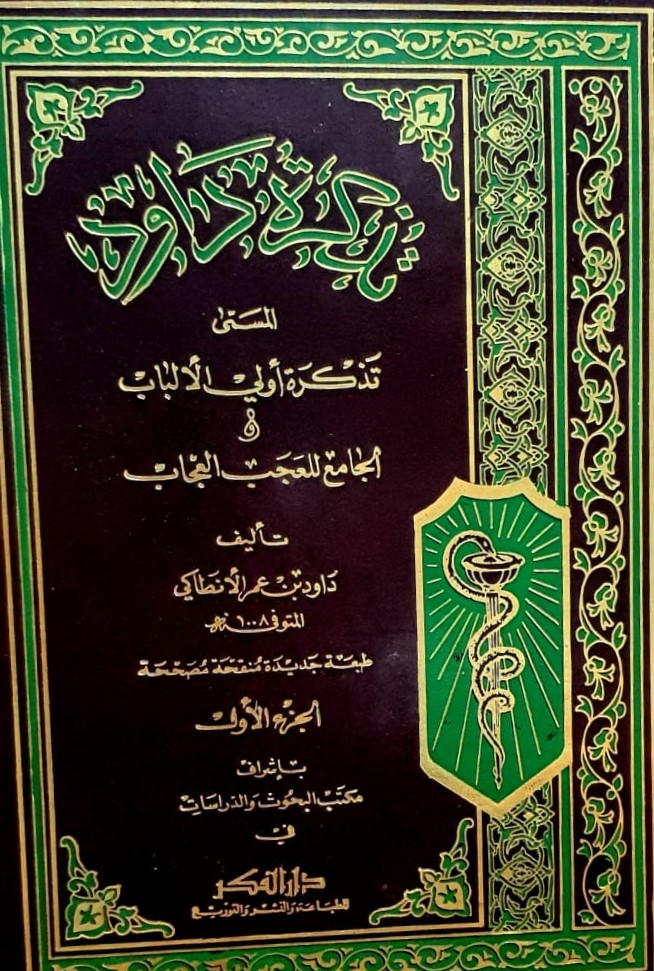 تذكرة داود
المسمى
تَذكرَة أولي الألباب
و
الجامع للعَجَب العُجَاب
تأليف
داود بن عمر الانطاكي
المتوفى ١٠٠٨ هـ
طبعَة جَديدَة مُنقحَة مُصَحّحَة
الجزء الأول
بإشراف
مكتَب البحوث وَالدراسَات
في
دار الفكر
للطباعة والنشر والتوزيع